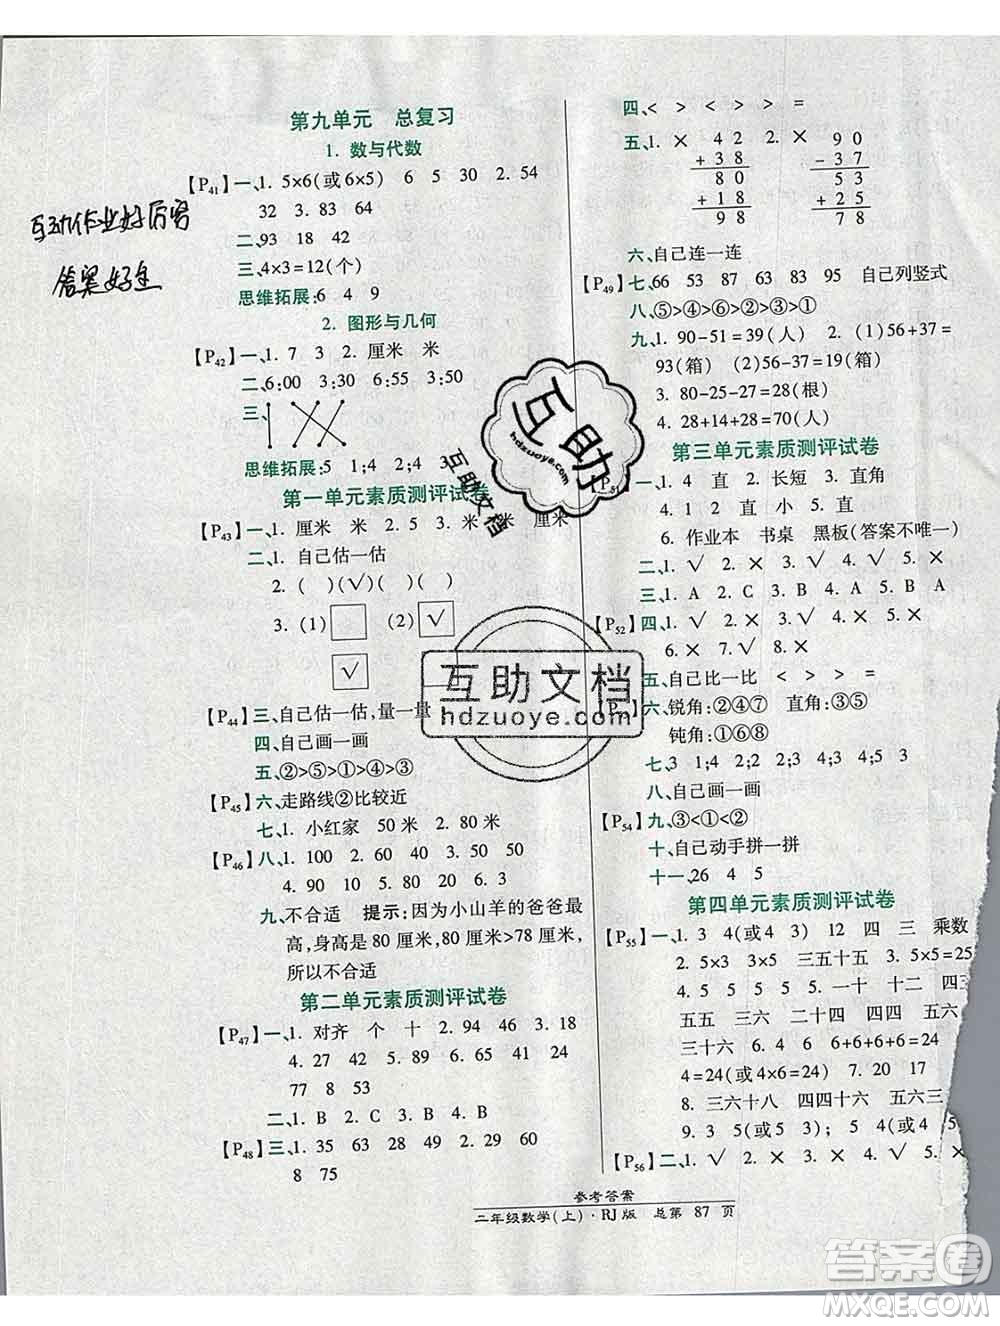 互动作业好厉害
答案好全
第九单元 总复习
1. 数与代数
【P41】一、1. 5×6(或6×5) 6 5 30 2. 54
32 3. 83 64
二、93 18 42
三、4×3=12(个)
思维拓展:6 4 9
2. 图形与几何
【P42】一、1. 7 3 2. 厘米 米
二、6:00 3:30 6:55 7:50
三、
思维拓展:5 1;4 2;4 3
第一单元素质测评试卷
【P43】一、1. 厘米 米 2. 5 3. 米 米 厘米
二、1. 自己估一估
2. ( )(√)( )( )
3. (1) (2) √
√
【P44】三、自己估一估,量一量
四、自己画一画
五、②>⑤>①>④>③
【P45】六、走路线②比较近
七、1. 小红家 50 米 2. 80 米
【P46】八、1. 100 2. 40 3. 50 50
4. 90 10 5. 80 20 6. 3
九、不合适 提示:因为小山羊的爸爸最
高,身高是 80 厘米,80 厘米>78 厘米,
所以不合适
第二单元素质测评试卷
【P47】一、1. 对齐 个 十 2. 94 46 3. 18
4. 27 42 5. 89 50 6. 28 56
77 8 53
二、1. B 2. C 3. B 4. B
【P48】三、1. 35 63 28 49 2. 29 60
8 75
四、< > > < > > =
五、1. × 42 2. × 90
+38 -37
80 53
+18 +25
98 78
六、自己连一连
【P49】七、66 53 87 63 83 95 自己列竖式
八、⑤>④>⑥>②>③>①
九、1. 90-51=39(人) 2. (1)56+37=
93(箱) (2)56-37=19(箱)
3. 80-25-27=28(根)
4. 28+14+28=70(人)
第三单元素质测评试卷
【P51】一、1. 4 直 2. 长短 3. 直角
4. 1 5. 直 小 5. 直
6. 作业本 书桌 黑板(答案不唯一)
二、1. √ 2. × 3. √ 4. √ 5. ×
三、1. A 2. C 3. B 4. A 5. A
【P52】四、1. √ 2. × 3. √ 4. × 5. ×
6. × 7. √ 8. ×
五、自己比一比 < > > =
六、锐角:②④⑦ 直角:③⑤
钝角:①⑥⑧
七、3 1;4 2;2 2;3 4;5 3
八、自己画一画
【P54】九、③<①<②
十、自己动手拼一拼
十一、26 4 5
第四单元素质测评试卷
【P55】一、1. 3 4(或4 3) 12 四 三 乘数
2. 5×3 3×5 三五十五 3. 5×5=25
4. 一 十 十二 四 三
五五 三六 二四 四四 五六
三十六 6. 4 6 6+6+6+6=24
4=24(或4×6=24) 7. 20 15
8. 三六十八 四四十六 五六三
9. 3 5(或5 3) 15 乘数
【P56】二、1. √ 2. × 3. × 4. √ 5. ×
参考答案
二年级数学(上)·RJ版 总第 87 页
互助
hdzuoye.com
互助文档
互助文档
hdzuoye.com
答案圈
MXQE.COM